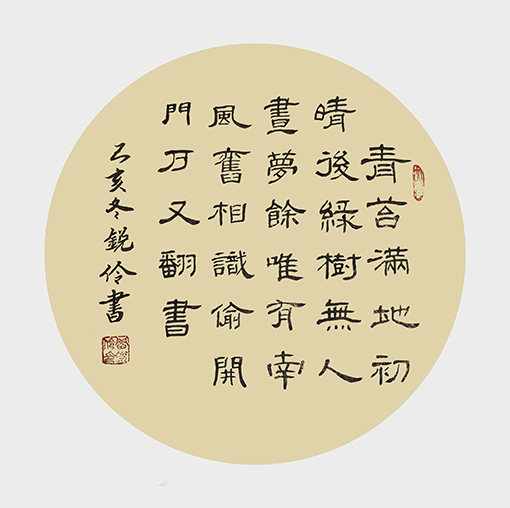 青苔滿地初
晴後綠樹無人
晝夢餘唯有南
風舊相識偷開
門戶又翻書
己亥冬銳伶書